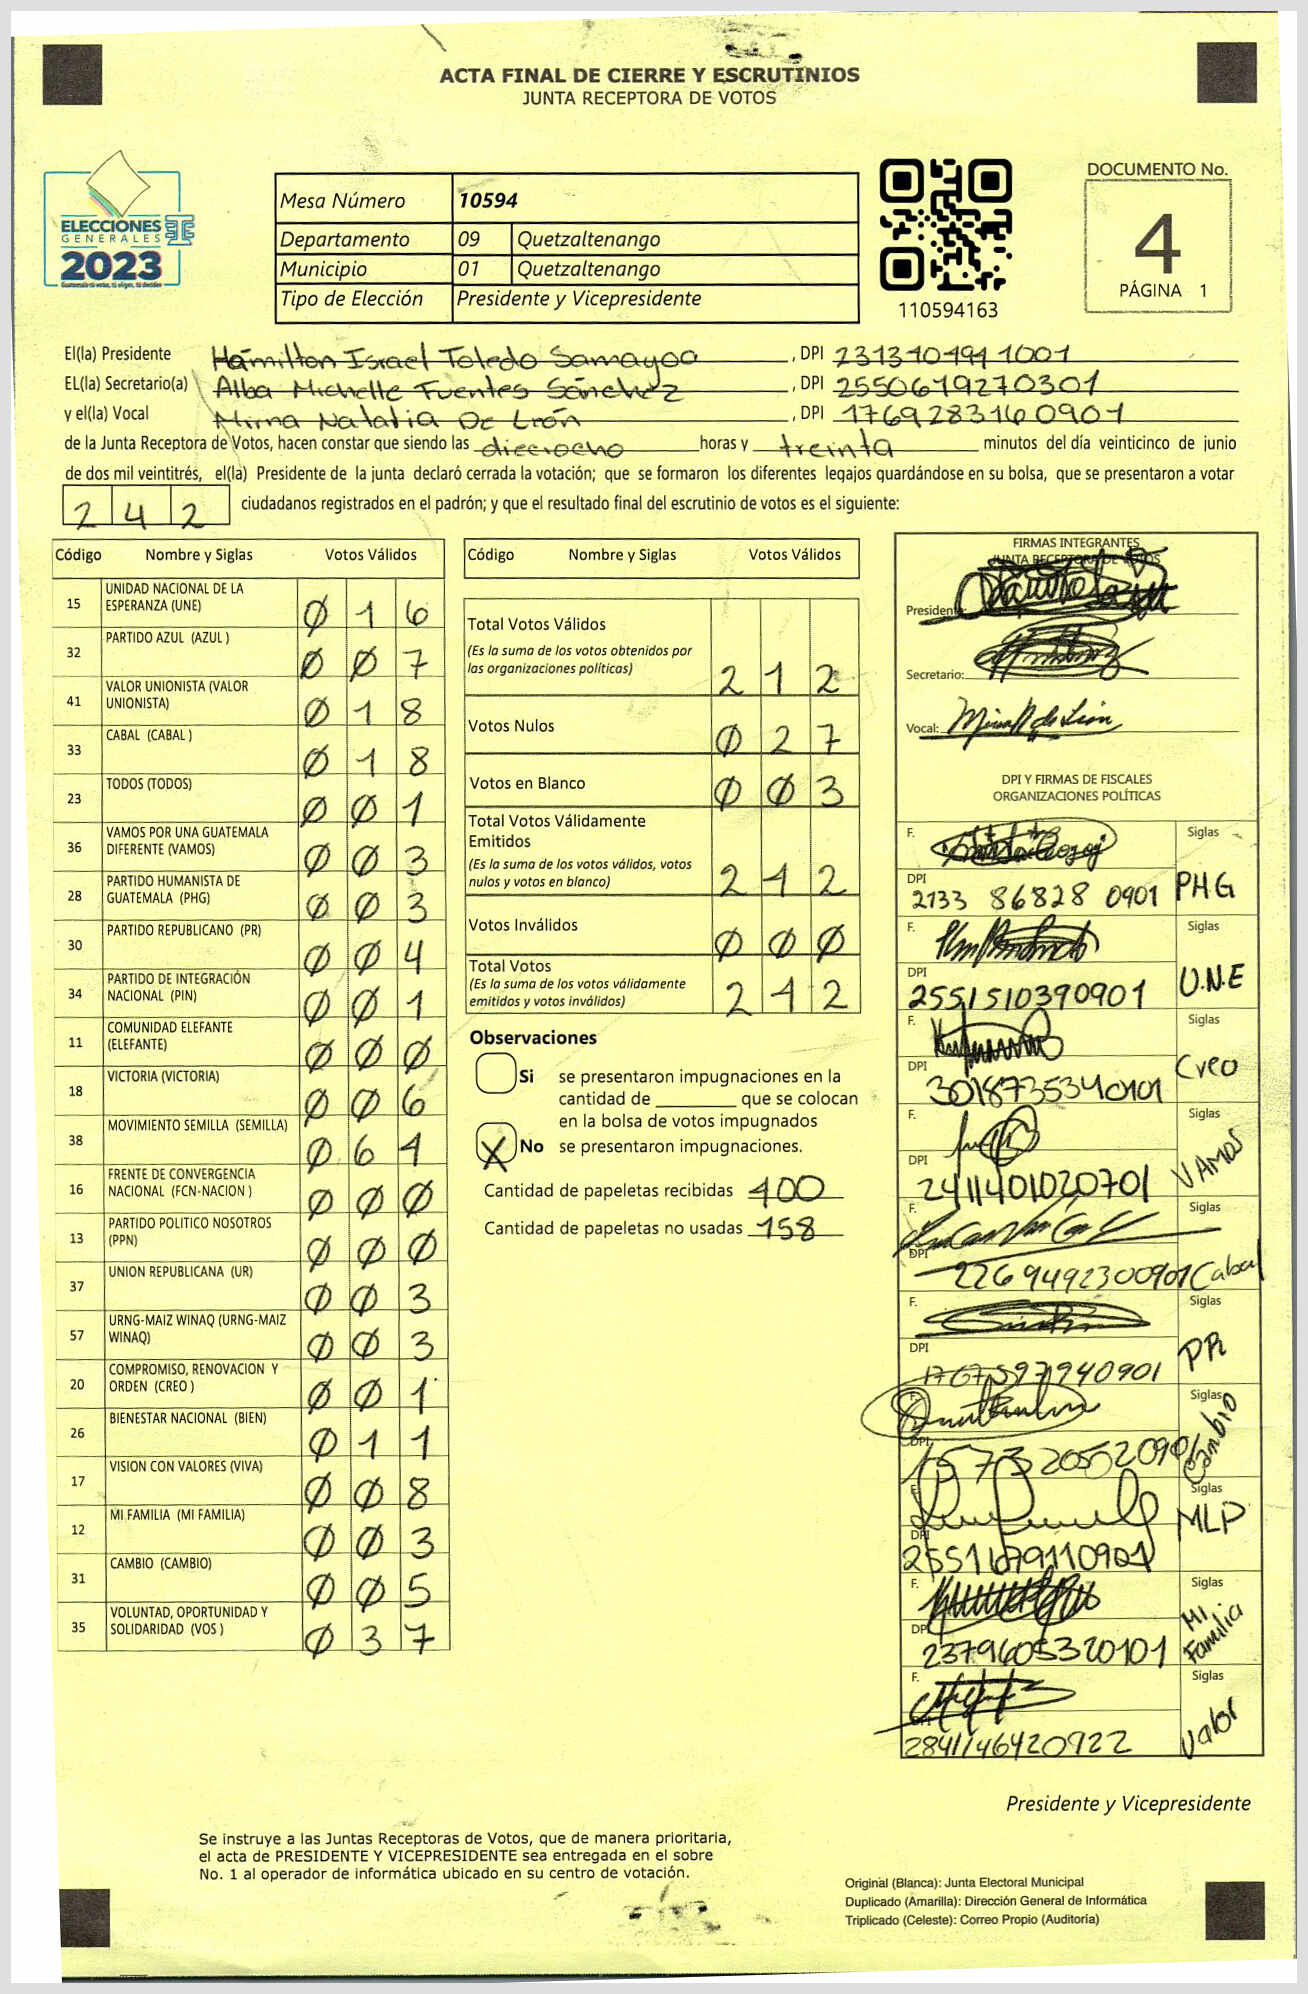 ACTA FINAL DE CIERRE Y ESCRUTINIOS
JUNTA RECEPTORA DE VOTOS
ELECCIONES
GENERALES
2023
Guatemala tú votas, tú eliges, tú decides
Mesa Número 10594
Departamento 09 Quetzaltenango
Municipio 01 Quetzaltenango
Tipo de Elección Presidente y Vicepresidente
110594163
DOCUMENTO No.
4
PÁGINA 1
El(la) Presidente Hámilton Israel Toledo Samayoa, DPI 2313101911001
EL(la) Secretario(a) Alba Michelle Fuentes Sánchez, DPI 2550619270301
y el(la) Vocal Mirna Natalia De León, DPI 1769283160901
de la Junta Receptora de Votos, hacen constar que siendo las dieciocho horas y treinta minutos del día veinticinco de junio
de dos mil veintitrés, el(la) Presidente de la junta declaró cerrada la votación; que se formaron los diferentes legajos guardándose en su bolsa, que se presentaron a votar
242 ciudadanos registrados en el padrón; y que el resultado final del escrutinio de votos es el siguiente:
Código Nombre y Siglas Votos Válidos
15 UNIDAD NACIONAL DE LA ESPERANZA (UNE) 016
32 PARTIDO AZUL (AZUL ) 007
41 VALOR UNIONISTA (VALOR UNIONISTA) 018
33 CABAL (CABAL ) 018
23 TODOS (TODOS) 001
36 VAMOS POR UNA GUATEMALA DIFERENTE (VAMOS) 003
28 PARTIDO HUMANISTA DE GUATEMALA (PHG) 003
30 PARTIDO REPUBLICANO (PR) 004
34 PARTIDO DE INTEGRACIÓN NACIONAL (PIN) 001
11 COMUNIDAD ELEFANTE (ELEFANTE) 000
18 VICTORIA (VICTORIA) 006
38 MOVIMIENTO SEMILLA (SEMILLA) 064
16 FRENTE DE CONVERGENCIA NACIONAL (FCN-NACION ) 000
13 PARTIDO POLITICO NOSOTROS (PPN) 000
37 UNION REPUBLICANA (UR) 003
57 URNG-MAIZ WINAQ (URNG-MAIZ WINAQ) 003
20 COMPROMISO, RENOVACION Y ORDEN (CREO ) 001
26 BIENESTAR NACIONAL (BIEN) 011
17 VISION CON VALORES (VIVA) 008
12 MI FAMILIA (MI FAMILIA) 003
31 CAMBIO (CAMBIO) 005
35 VOLUNTAD, OPORTUNIDAD Y SOLIDARIDAD (VOS ) 037
Código Nombre y Siglas Votos Válidos
Total Votos Válidos
(Es la suma de los votos obtenidos por
las organizaciones políticas) 212
Votos Nulos 027
Votos en Blanco 003
Total Votos Válidamente
Emitidos
(Es la suma de los votos válidos, votos
nulos y votos en blanco) 242
Votos Inválidos 000
Total Votos
(Es la suma de los votos válidamente
emitidos y votos inválidos) 242
Observaciones
Si se presentaron impugnaciones en la
cantidad de ________ que se colocan
en la bolsa de votos impugnados
X No se presentaron impugnaciones.
Cantidad de papeletas recibidas 400
Cantidad de papeletas no usadas 158
FIRMAS INTEGRANTES
JUNTA RECEPTORA DE VOTOS
Presidente:
Secretario:
Vocal:
DPI Y FIRMAS DE FISCALES
ORGANIZACIONES POLÍTICAS
F. Siglas
DPI 2133 86828 0901 PHG
F. Siglas
DPI 2551510390901 U.N.E
F. Siglas
DPI 3018735340101 Creo
F. Siglas
DPI 2411401020701 VAMOS
F. Siglas
DPI 2269492300901 Cabal
F. Siglas
DPI 1767597940901 PR
F. Siglas
DPI 1573205520901 Cambio
F. Siglas
DPI 2551679110901 MLP
F. Siglas
DPI 2379605320101 Mi Familia
F. Siglas
DPI 2841146420922 Valor
Presidente y Vicepresidente
Se instruye a las Juntas Receptoras de Votos, que de manera prioritaria,
el acta de PRESIDENTE Y VICEPRESIDENTE sea entregada en el sobre
No. 1 al operador de informática ubicado en su centro de votación.
Original (Blanca): Junta Electoral Municipal
Duplicado (Amarilla): Dirección General de Informática
Triplicado (Celeste): Correo Propio (Auditoría)